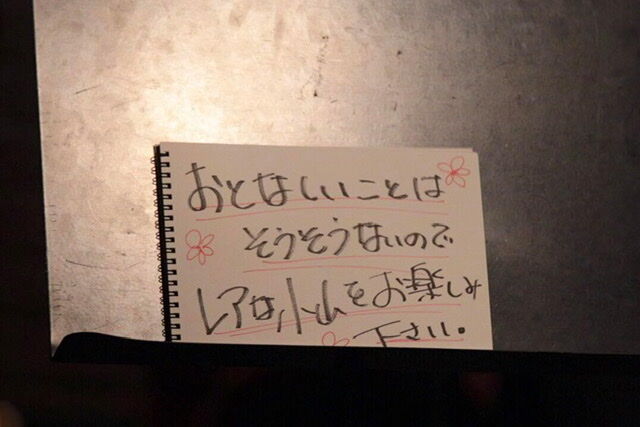 おとなしいことは
そうそうないので
レアな小山をお楽しみ
下さい。